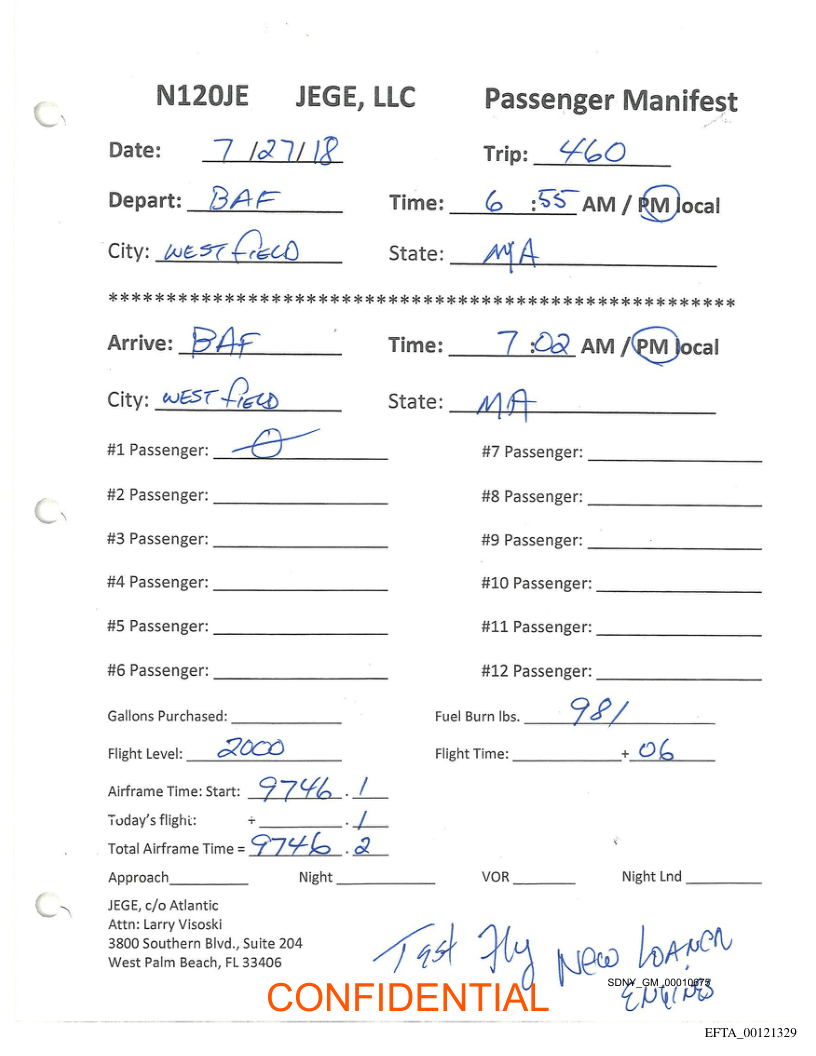 N120JE JEGE, LLC Passenger Manifest
Date: 7/27/18 Trip: 460
Depart: BAF Time: 6:55 AM / PM local
City: WESTFIELD State: MA
******************************************************
Arrive: BAF Time: 7:02 AM / PM local
City: WESTFIELD State: MA
#1 Passenger: 0 #7 Passenger:
#2 Passenger: #8 Passenger:
#3 Passenger: #9 Passenger:
#4 Passenger: #10 Passenger:
#5 Passenger: #11 Passenger:
#6 Passenger: #12 Passenger:
Gallons Purchased: Fuel Burn lbs. 981
Flight Level: 2000 Flight Time: + 06
Airframe Time: Start: 9746.1
Today's flight: + .1
Total Airframe Time = 9746.2
Approach Night VOR Night Lnd
JEGE, c/o Atlantic
Attn: Larry Visoski
3800 Southern Blvd., Suite 204
West Palm Beach, FL 33406
Test Fly NEW LOANER
ENGINES
CONFIDENTIAL
EFTA_00121329